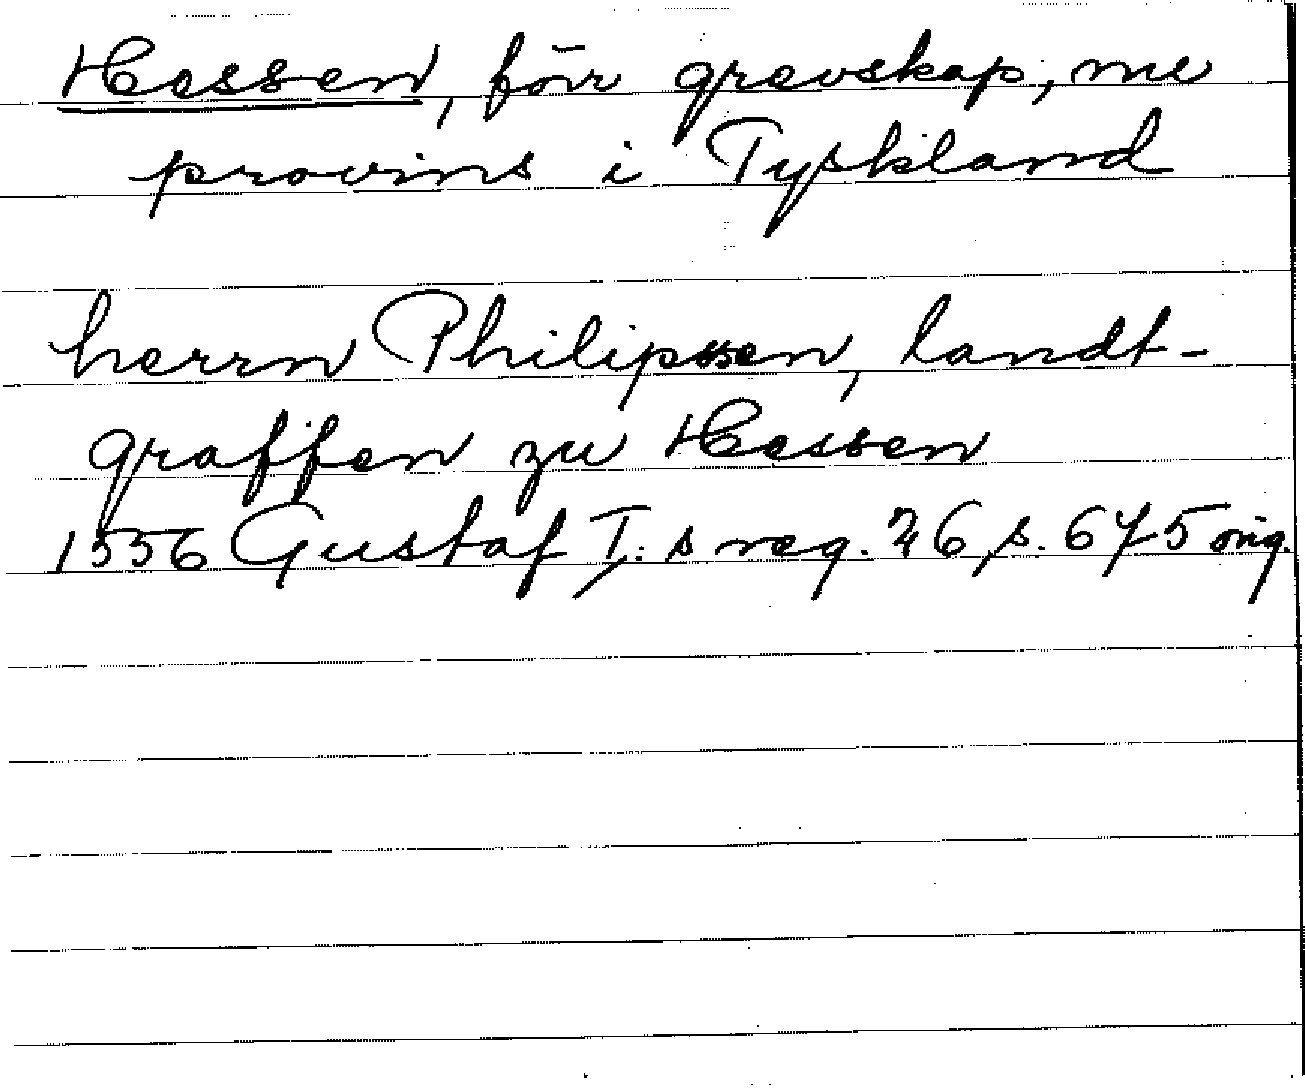 Hessen, förr grevskap, nu
provins i Tyskland
herrn Philipssen, landt-
graffen zu Hessen
1556 Gustaf I:s reg. 26, s. 675 orig.